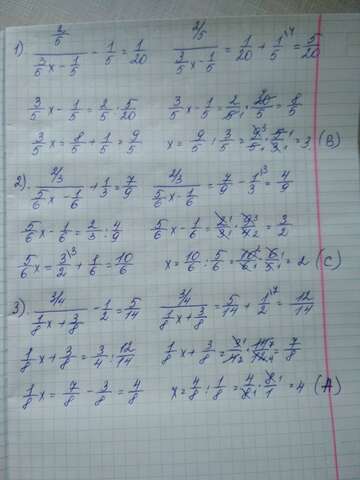 1) (2/5)/(3/5 x − 1/5) − 1/5 = 1/20   (2/5)/(3/5 x − 1/5) = 1/20 + 1/5 = 5/20
3/5 x − 1/5 = 2/5 : 5/20   3/5 x − 1/5 = 2/5 · 20/5 = 8/5
3/5 x = 8/5 + 1/5 = 9/5   x = 9/5 : 3/5 = 9/5 · 5/3 = 3 (B)
2) (2/3)/(5/6 x − 1/6) + 1/3 = 7/9   (2/3)/(5/6 x − 1/6) = 7/9 − 1/3 = 4/9
5/6 x − 1/6 = 2/3 : 4/9   5/6 x − 1/6 = 2/3 · 9/4 = 3/2
5/6 x = 3/2 + 1/6 = 10/6   x = 10/6 : 5/6 = 10/6 · 6/5 = 2 (C)
3) (3/4)/(1/8 x + 3/8) − 1/2 = 5/14   (3/4)/(1/8 x + 3/8) = 5/14 + 1/2 = 12/14
1/8 x + 3/8 = 3/4 : 12/14   1/8 x + 3/8 = 3/4 · 14/12 = 7/8
1/8 x = 7/8 − 3/8 = 4/8   x = 4/8 : 1/8 = 4/8 · 8/1 = 4 (A)